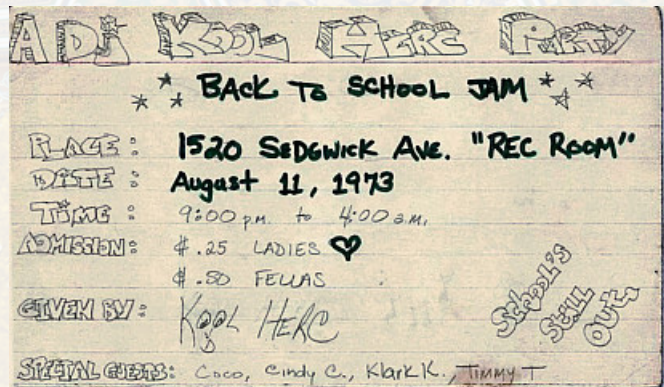 A DJ KOOL HERC PARTY
BACK TO SCHOOL JAM
PLACE: 1520 SEDGWICK AVE. "REC ROOM"
DATE: August 11, 1973
TIME: 9:00 pm. to 4:00 a.m.
ADMISSION: $.25 LADIES ♥
$.50 FELLAS
GIVEN BY: KOOL HERC
SCHOOL'S
STILL
OUT.
SPECIAL GUESTS: Coco, Cindy C., Klark K., Timmy T